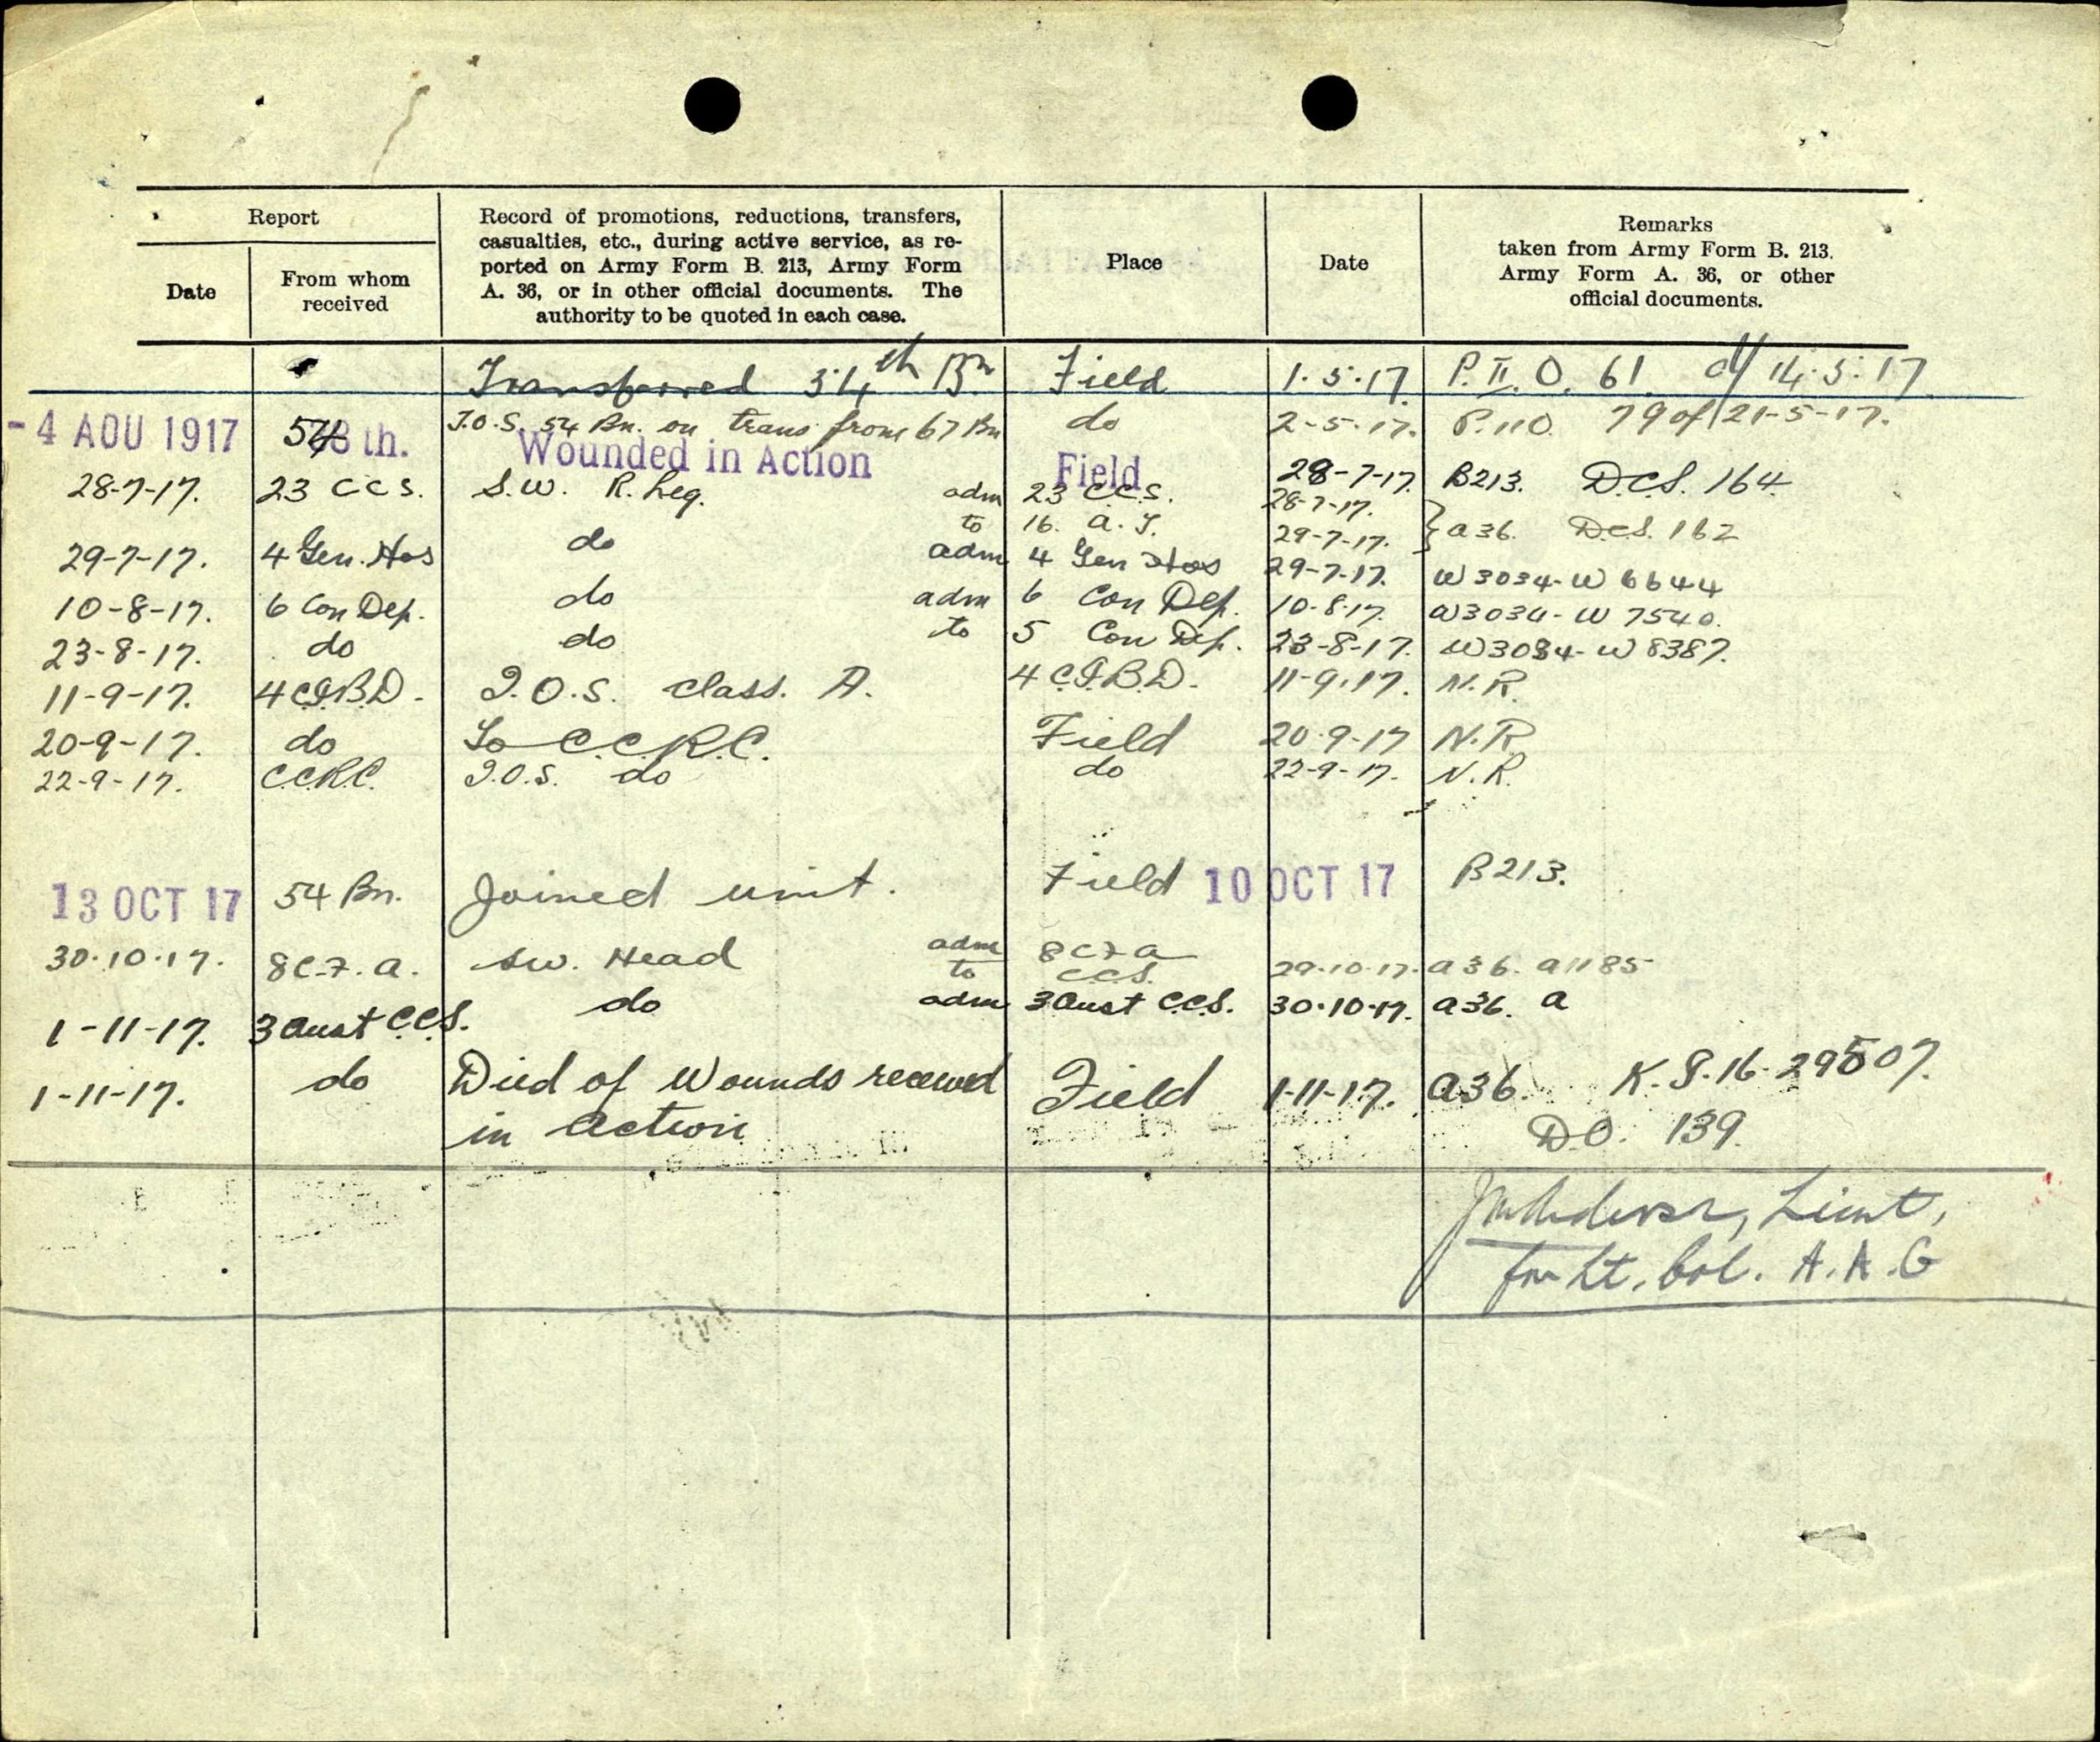 Report
Date
From whom
received
Record of promotions, reductions, transfers,
casualties, etc., during active service, as re-
ported on Army Form B. 213, Army Form
A. 36, or in other official documents. The
authority to be quoted in each case.
Place
Date
Remarks
taken from Army Form B. 213.
Army Form A. 36, or other
official documents.
Transferred 54th Bn Field 1.5.17. P.II.O. 61 d/ 14.5.17
T.O.S. 54 Bn. on trans from 67 Bn do 2-5-17. P.11O. 79 of 21-5-17.
-4 AOU 1917 54 th. Wounded in Action Field 28-7-17. B213. D.C.S. 164
28-7-17. 23 C C S. S.W. R. Leg. adm 23 C.C.S. 28-7-17.
to 16. A.T. 29-7-17. } a36. D.C.S. 162
29-7-17. 4 Gen. Hos do adm 4 Gen Hos 29-7-17. W3034-W6644
10-8-17. 6 Con Dep. do adm 6 Con Dep. 10-8-17. W3034-W7540.
23-8-17. do do to 5 Con Dep. 23-8-17. W3034-W8387.
11-9-17. 4 C.I.B.D. T.O.S. class. A. 4 C.I.B.D. 11-9-17. N.R.
20-9-17. do To C.C.R.C. Field 20-9-17 N.R
22-9-17. C.C.R.C. T.O.S. do do 22-9-17. N.R.
13 OCT 17 54 Bn. Joined unit. Field 10 OCT 17 B213.
30.10.17. 8 C.F.A. SW. Head adm 8 C F A
to C.C.S. 29.10.17. a36. a1185
1-11-17. 3 Aust C.C.S. do adm 3 Aust C.C.S. 30.10.17. a36. a
1-11-17. do Died of Wounds received Field 1-11-17. a36. K.S.16-29507.
in action D.O. 139.
Lieut,
for Lt. Col. A.A.G